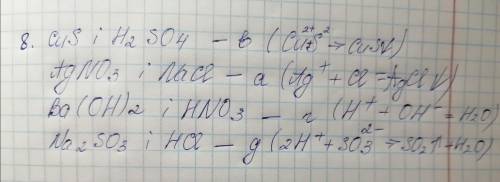 8. CuS i H2 SO4 – в (Cu²⁺ + S²⁻ → CuS↓)
AgNO3 i NaCl – а (Ag⁺ + Cl⁻ → AgCl↓)
Ba(OH)2 i HNO3 – г (H⁺ – OH⁻ = H2O)
Na2SO3 i HCl – д (2H⁺ + SO3²⁻ → SO2↑ + H2O)